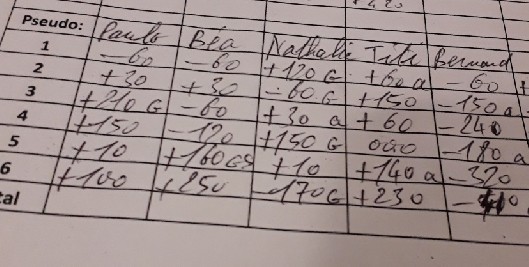 Pseudo: Paulo Béa Nathalie Titi Bernard
1 -60 -60 +120 G +60 a -60
2 +30 +30 -60 G +150 -150 a
3 +210 G -60 +30 a +60 -240
4 +150 -120 +150 G 000 -180 a
5 +10 +160 GS +10 +140 a -320
6 +100 +250 -170 G +230 -410